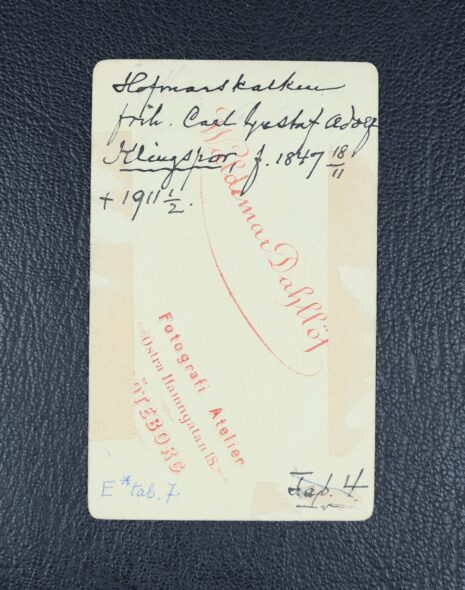 Hofmarskalken
frih. Carl Gustaf Adolf
Klingspor, f. 1847 18/11
+ 1911 1/2.
Waldemar Dahllöf
Fotografi Atelier
Östra Hamngatan 18
GÖTEBORG
E* tab. 7.
Tab. 4